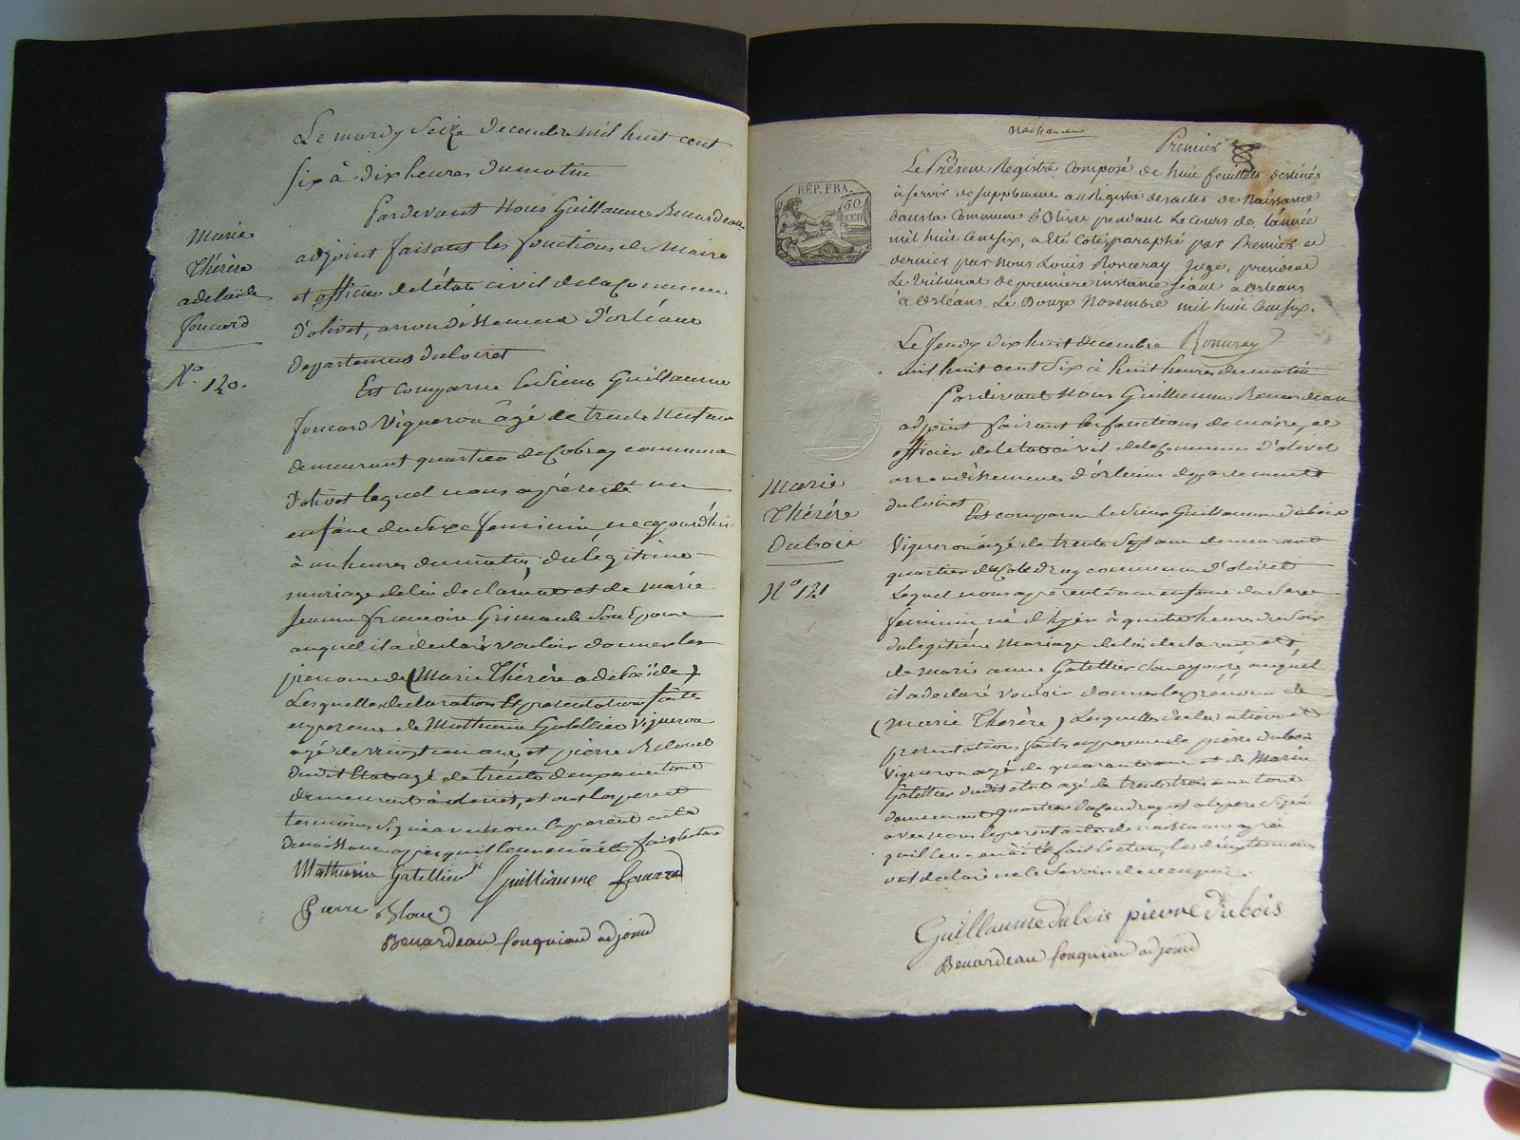 Le mardy Seize decembre mil huit cent
six à dix heures du matin
Pardevant Nous Guillaume Benardeau
adjoint faisant les fonctions de Maire
et officier de l'état civil de la Commune
d'olivet, arrondissement d'orléans
departement du loiret
Marie
Thérèse
adelaïde
foucard
N.º 120.
Est comparu le Sieur Guillaume
foucard Vigneron âgé de trente neuf ans
demeurant quartier de commune
d'olivet lequel nous a présenté un
enfant du Sexe feminin né ce jourd'hui
à un heures du matin, du légitime
mariage de lui déclarant et de marie
Jeanne francoise Grimault Son Epouse
auquel il a déclaré vouloir donner les
prenoms de (Marie Thérèse adelaïde)
Lesquelles declaration Et presentation faite
en presence de Mathurin Gatellier Vigneron
agé de ans, et pierre Blouet
dudit Etat agé de trente deux ans tous
demeurant à olivet, et ont les pere et
temoins Signé avec nous le present acte
de naissance apres qu'il leur en a été fait lecture
Mathurin Gatellier Guilliaume foucard
Pierre Bloue
Benardeau fouqniau adjoint
Naissances
Premier
REP. FRA.
Le Présent Registre Composé de huit feuillets destinés
à servir de Supplément au Registre des actes de Naissance
dans la Commune d'Olivet pendant Le Cours de l'année
mil huit Cent six, a été Coté et paraphé par Premier et
dernier par Nous Louis Ronceray Juge, président
Le Tribunal de première instance séant à Orléans
à Orléans Le Douze Novembre mil huit Cent six.
Ronceray
Le Jeudy dix huit decembre
mil huit cent Six à huit heures du matin
Pardevant Nous Guillaume Benardeau
adjoint faisant les fonctions de maire, et
officier de l'état civil de la Commune d'olivet
arrondissement d'orleans departement
du loiret
Marie
Thérèse
Dubois
Nº 121
Est comparu le Sieur Guillaume dubois
Vigneron agé de trente Sept ans demeurant
quartier du Coudray commune d'olivet
Lequel nous a présenté un enfant du Sexe
feminin né d'hyer à quatre heures du Soir
du légitime Mariage de lui déclarant et
de marie anne Gatellier Son epouse auquel
il a declaré vouloir donner les prénoms de
(Marie Therèse) Lesquelles declaration et
presentation faites en presence de pierre dubois
Vigneron agé de quarante ans et de Marie
Gatellier dudit etat agé de trente trois ans tous
demeurant quartier du Coudray et a le pere Signé
avec nous le present acte de naissance après
qu'il leur en a été fait lecture, les temoins
ont declaré ne le Savoir de ce enquis.
Guillaume dubois pierre Dubois
Benardeau fouqniau adjoint